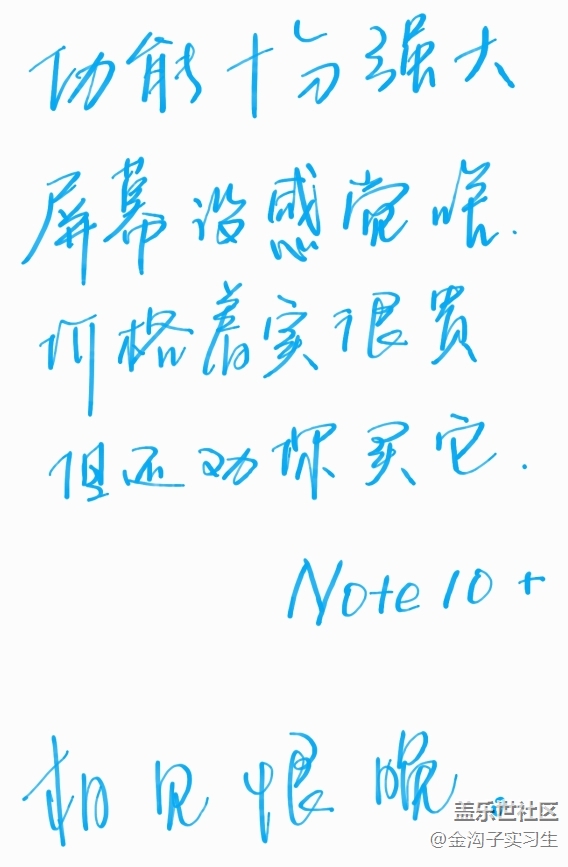 功能十分强大
屏幕没感觉啥.
价格着实很貴
但还劝你买它.
Note 10+
相见恨晚。
盖乐世社区
@金沟子实习生